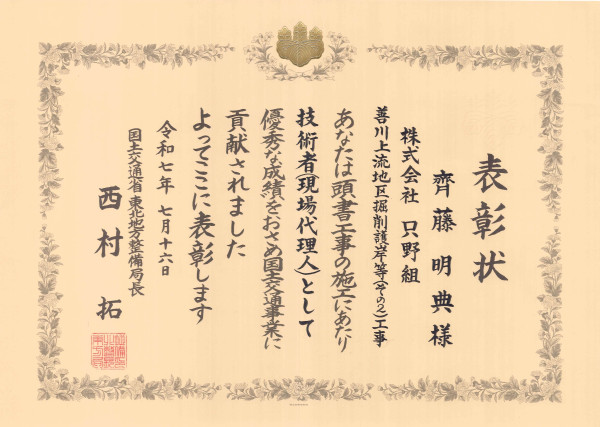 表彰状
齊藤明典様
株式会社 只野組
善川上流地区掘削護岸等(その2)工事
あなたは頭書工事の施工にあたり
技術者現場代理人として
優秀な成績をおさめ国土交通事業に
貢献されました
よってここに表彰します
令和七年 七月十六日
国土交通省 東北地方整備局長
西村 拓